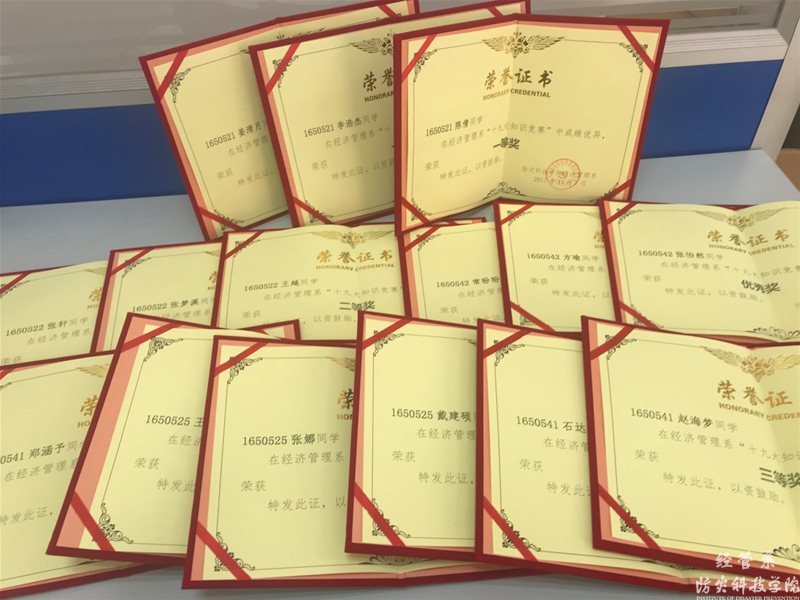 1650521 姜清月
在经济管理系
荣获
特发此证,
1650521 李浩杰同学
在经济管理系
荣获
特发此证,
荣誉证书
HONORARY CREDENTIAL
1650521 陈倩同学
在经济管理系“十九大知识竞赛”中成绩优异,
荣获
一等奖
特发此证,以资鼓励。
1650522 张轩同学
在经济管理系
荣获
1650522 张梦溪同学
在经济管理系
荣获
荣誉证书
HONORARY CREDENTIAL
1650522 王越同学
在经济管理系“十九大知识竞赛
荣获
二等奖
特发此证,以资鼓励。
1650542 常盼盼
在经济管理系
荣获
特发此证,
1650542 方瑜同学
在经济管理系
荣获
特发此证,
荣誉证书
HONORARY CREDENTIAL
1650542 张怡然同学
在经济管理系“十九大知识竞
荣获
优秀奖
特发此证,以资鼓励。
0541 郑涵予同学
在经济管理系
特发此证,
1650525 王
在经济管理
荣获
特发此证,
1650525 张娜同学
在经济管理系
荣获
特发此证,以
1650525 戴建硕
在经济管理系
荣获
特发此证,以
1650541 石达
在经济管理系
荣获
特发此证,以
荣誉证
HONORARY CREDEN
1650541 赵海梦同学
在经济管理系“十九大知识
荣获
三等奖
特发此证,以资鼓励。
经管系
防灾科技学院
INSTITUTE OF DISASTER PREVENTION